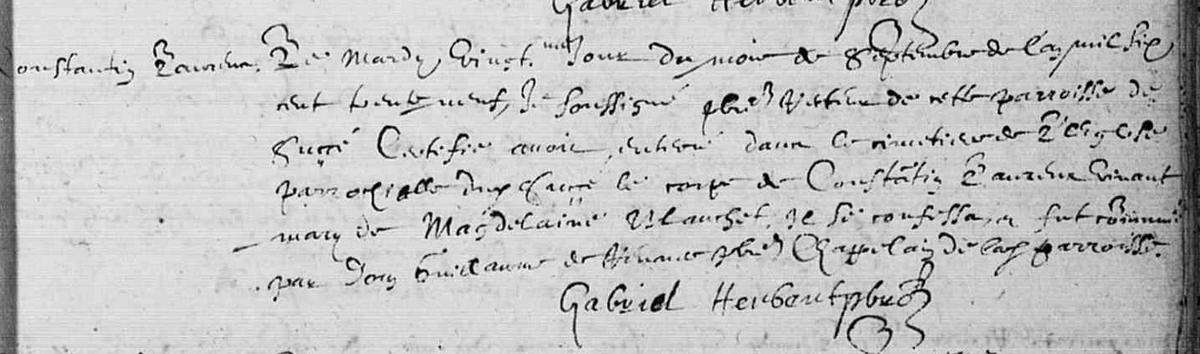 Gabriel Herbaut pbre
Constantin Laureur. Le Mardy vingt.me Jour du mois de Septembre de l'an mil six
cent trente neuf, Je soussigné pbre Victeur de cette parroisse de
Succé Certifie avoir enterré dans le cimetiere de L'Eglise
parrochialle dud Succé le corps de Constātin Laureur vivant
mary de Magdelaine Blauchet, Il se confessa, et fut cōmunié
par Dom Guillaume pbre Chappelain de lad parroisse.
Gabriel Herbaut pbre